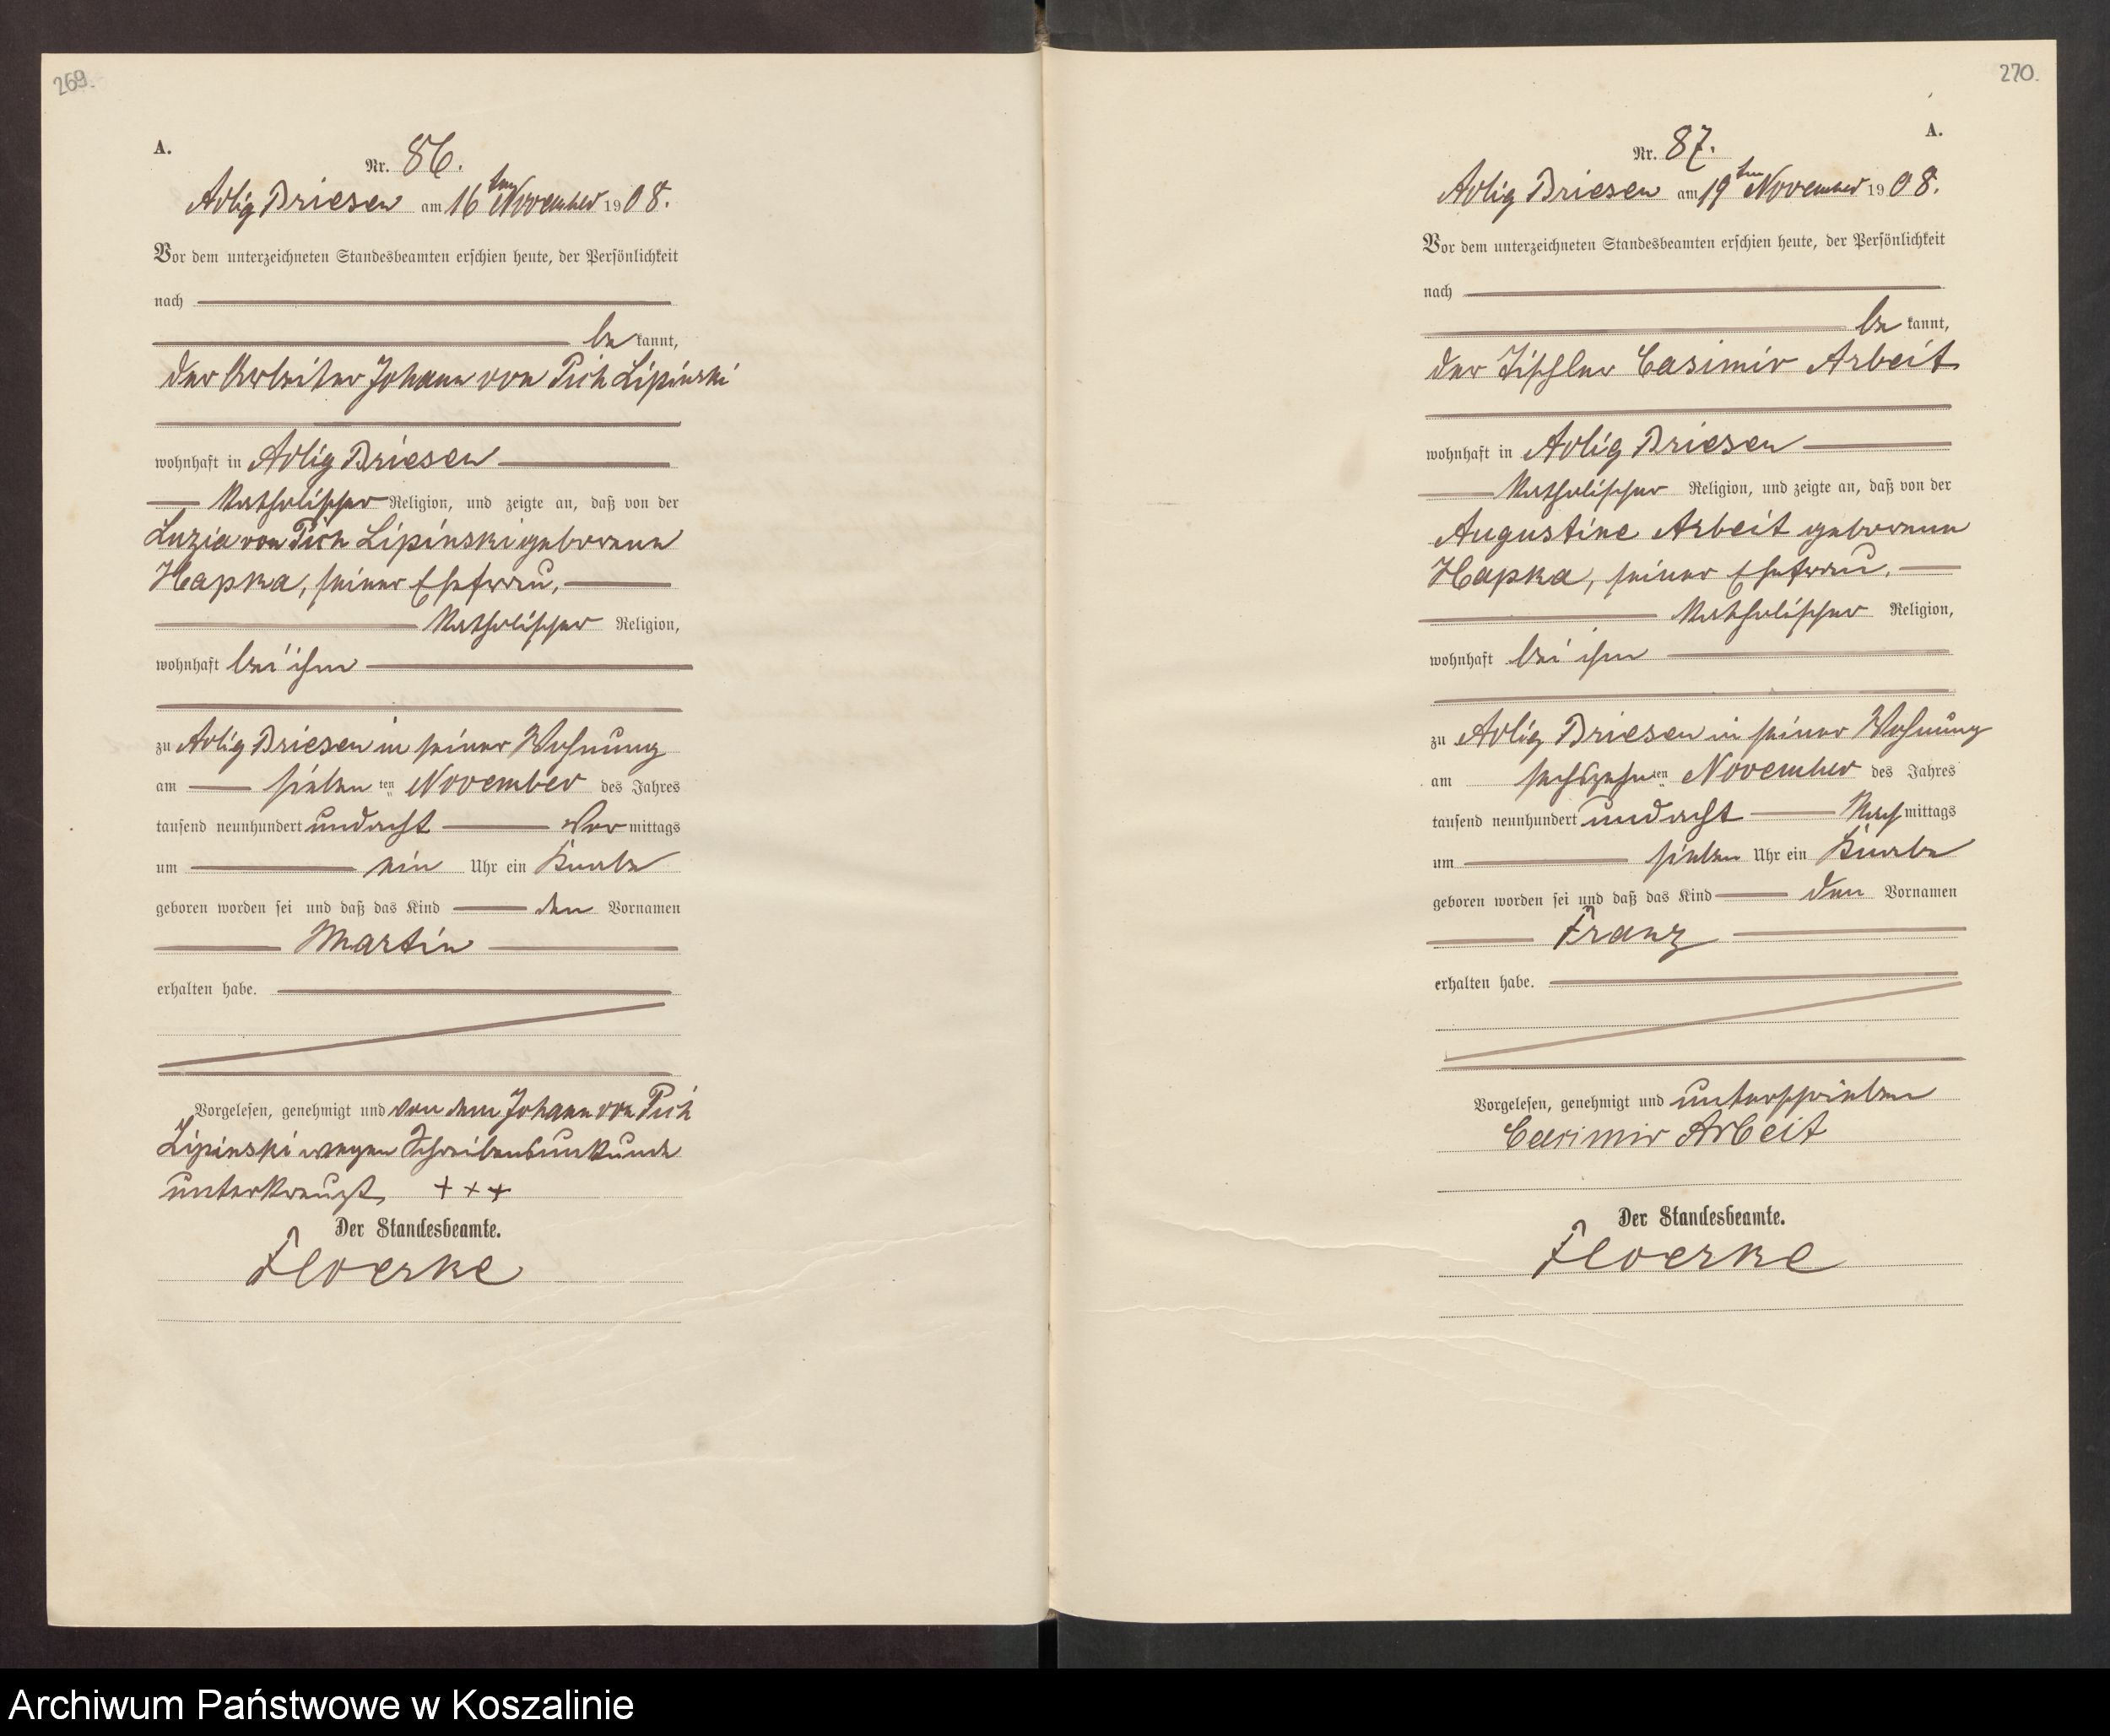 269.
A.
Nr. 86.
Adlig Briesen am 16ten November 1908.
Vor dem unterzeichneten Standesbeamten erschien heute, der Persönlichkeit
nach
bekannt,
der Arbeiter Johann von Pich Lipinski
wohnhaft in Adlig Briesen
katholischer Religion, und zeigte an, daß von der
Luzia von Pich Lipinski geborene
Hapka, seiner Ehefrau,
katholischer Religion,
wohnhaft bei ihm
zu Adlig Briesen in seiner Wohnung
am sieben ten November des Jahres
tausend neunhundert undacht Vormittags
um ein Uhr ein Knabe
geboren worden sei und daß das Kind den Vornamen
Martin
erhalten habe.
Vorgelesen, genehmigt und von dem Johann von Pich
Lipinski wegen Schreibensunkunde
unterkreuzt, + + +
Der Standesbeamte.
Floerke
270.
A.
Nr. 87.
Adlig Briesen am 19ten November 1908.
Vor dem unterzeichneten Standesbeamten erschien heute, der Persönlichkeit
nach
bekannt,
der Tischler Casimir Arbeit
wohnhaft in Adlig Briesen
katholischer Religion, und zeigte an, daß von der
Augustine Arbeit geborene
Hapka, seiner Ehefrau,
katholischer Religion,
wohnhaft bei ihm
zu Adlig Briesen in seiner Wohnung
am sechszehn ten November des Jahres
tausend neunhundert undacht Nachmittags
um sieben Uhr ein Knabe
geboren worden sei und daß das Kind den Vornamen
Franz
erhalten habe.
Vorgelesen, genehmigt und unterschrieben
Casimir Arbeit
Der Standesbeamte.
Floerke
Archiwum Państwowe w Koszalinie